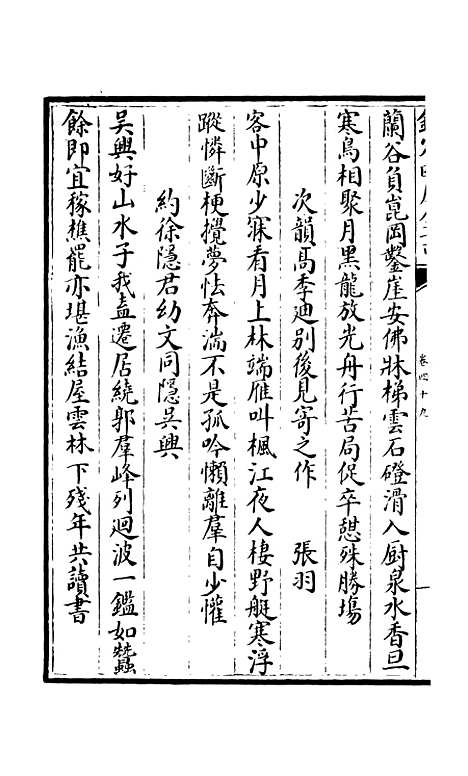 卷四十九
蘭谷負崑岡鑿崖安佛牀梯雲石磴滑入厨泉水香旦
寒鳥相聚月黑龍放光舟行苦局促卒憩殊勝塲
次韻高季迪別後見寄之作　張羽
客中原少寐看月上林端雁叫楓江夜人棲野艇寒浮
蹤憐斷梗攪夢怯奔湍不是孤吟懶離羣自少懽
約徐隱君幼文同隱吳興
吳興好山水子我盍遷居繞郭羣峰列迴波一鑑如蠶
餘即宜稼樵罷亦堪漁結屋雲林下殘年共讀書